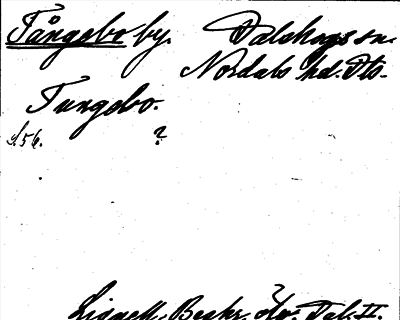 Tångebo by. Dalskogs sn.
Nordals hd. Ds.
Tungebo.
s. 56. ?
Lignell. Beskr. öv. Dal. II.